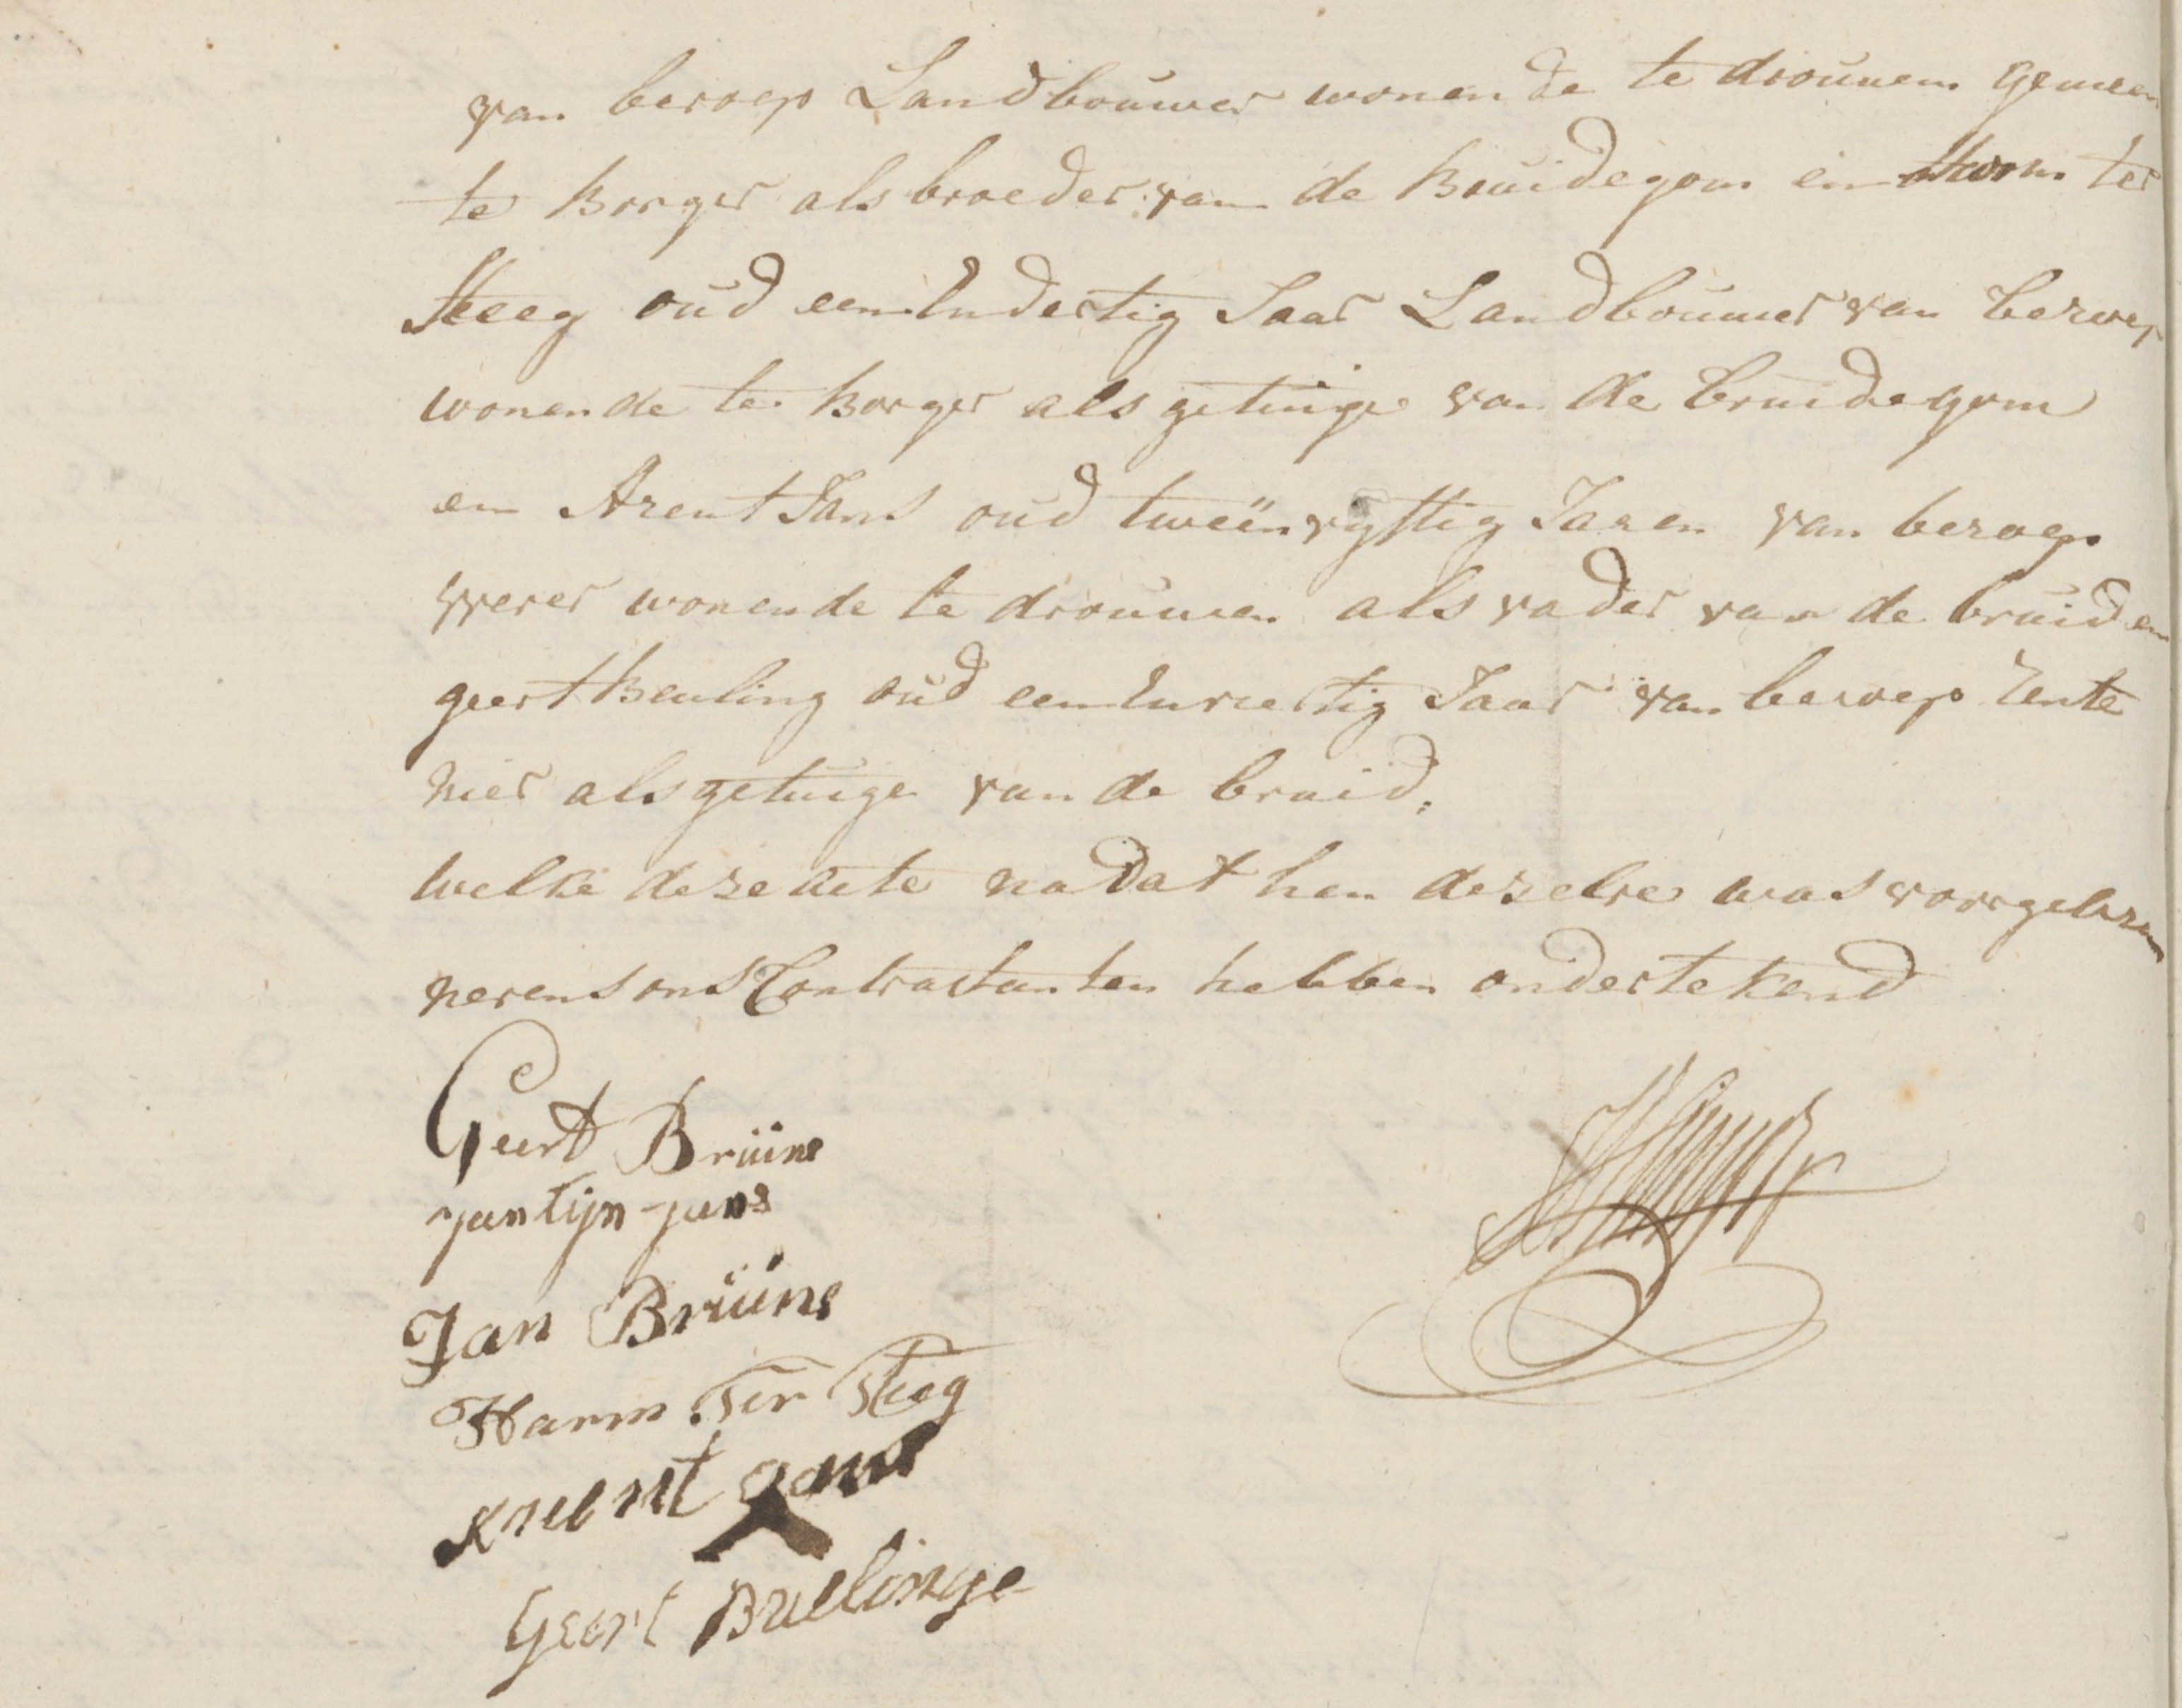 van beroep Landbouwer wonende te drouwen gemeen
te Borger als broeder van de Bruidegom en Harm ter
Steeg oud eenendertig Jaar Landbouwer van beroep
wonende te Borger als getuige van de bruidegom
en Arent Jans oud tweënvyftig Jaren van beroep
wever wonende te drouwen als vader van de bruid en
geert Beuling oud eenenveertig Jaar van beroep rente
nier als getuige van de bruid,
welke deze acte na dat hen dezelve was voorgelezen
nevens ons Contractanten hebben ondertekend
Geert Brüins
jantijn jans
Jan Brüins
Harm Ter Steeg
Arent Jans
Geert Buelinge